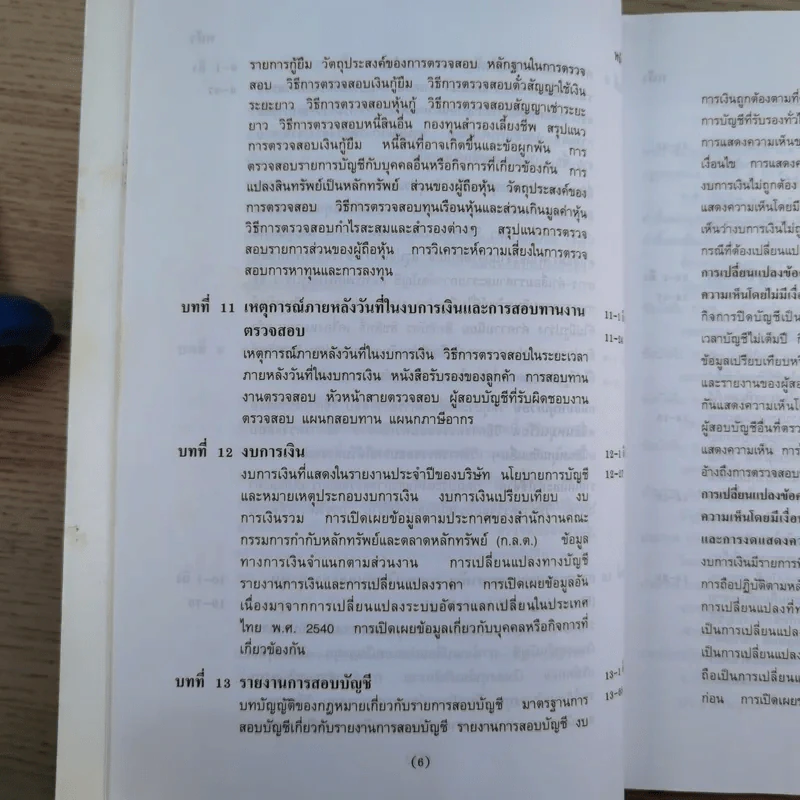 รายการกู้ยืม วัตถุประสงค์ของการตรวจสอบ หลักฐานในการตรวจ
สอบ วิธีการตรวจสอบเงินกู้ยืม วิธีการตรวจสอบตั๋วสัญญาใช้เงิน
ระยะยาว วิธีการตรวจสอบหุ้นกู้ วิธีการตรวจสอบสัญญาเช่าระยะ
ยาว วิธีการตรวจสอบหนี้สินอื่น กองทุนสำรองเลี้ยงชีพ สรุปแนว
การตรวจสอบเงินกู้ยืม หนี้สินที่อาจเกิดขึ้นและข้อผูกพัน การ
ตรวจสอบรายการบัญชีกับบุคคลอื่นหรือกิจการที่เกี่ยวข้องกัน การ
แปลงสินทรัพย์เป็นหลักทรัพย์ ส่วนของผู้ถือหุ้น วัตถุประสงค์ของ
การตรวจสอบ วิธีการตรวจสอบทุนเรือนหุ้นและส่วนเกินมูลค่าหุ้น
วิธีการตรวจสอบกำไรสะสมและสำรองต่างๆ สรุปแนวการตรวจ
สอบรายการส่วนของผู้ถือหุ้น การวิเคราะห์ความเสี่ยงในการตรวจ
สอบการหาทุนและการลงทุน
บทที่ 11 เหตุการณ์ภายหลังวันที่ในงบการเงินและการสอบทานงาน 11-1
ตรวจสอบ
เหตุการณ์ภายหลังวันที่ในงบการเงิน วิธีการตรวจสอบในระยะเวลา
ภายหลังวันที่ในงบการเงิน หนังสือรับรองของลูกค้า การสอบทาน
งานตรวจสอบ หัวหน้าสายตรวจสอบ ผู้สอบบัญชีที่รับผิดชอบงาน
ตรวจสอบ แผนกสอบทาน แผนกภาษีอากร
บทที่ 12 งบการเงิน 12-1
งบการเงินที่แสดงในรายงานประจำปีของบริษัท นโยบายการบัญชี
และหมายเหตุประกอบงบการเงิน งบการเงินเปรียบเทียบ งบ
การเงินรวม การเปิดเผยข้อมูลตามประกาศของสำนักงานคณะ
กรรมการกำกับหลักทรัพย์และตลาดหลักทรัพย์ (ก.ล.ต.) ข้อมูล
ทางการเงินจำแนกตามส่วนงาน การเปลี่ยนแปลงทางบัญชี
รายงานการเงินและการเปลี่ยนแปลงราคา การเปิดเผยข้อมูลอัน
เนื่องมาจากการเปลี่ยนแปลงระบบอัตราแลกเปลี่ยนในประเทศ
ไทย พ.ศ. 2540 การเปิดเผยข้อมูลเกี่ยวกับบุคคลหรือกิจการที่
เกี่ยวข้องกัน
บทที่ 13 รายงานการสอบบัญชี 13-1
บทบัญญัติของกฎหมายเกี่ยวกับรายการสอบบัญชี มาตรฐานการ
สอบบัญชีเกี่ยวกับรายงานการสอบบัญชี รายงานการสอบบัญชี งบ
(6)
การเงินถูกต้องตามที่
การบัญชีที่รับรองทั่วไ
การแสดงความเห็น
เงื่อนไข การแสดง
งบการเงินไม่ถูกต้อง
แสดงความเห็นโดยมี
เห็นว่างบการเงินไม่ถู
กรณีที่ต้องเปลี่ยนแป
การเปลี่ยนแปลงข้อ
ความเห็นโดยไม่มีเงื่
กิจการปิดบัญชีเป็น
เวลาบัญชีไม่เต็มปี
ข้อมูลเปรียบเทียบ
และรายงานของผู้สอ
กันแสดงความเห็นโ
ผู้สอบบัญชีอื่นที่ตรว
แสดงความเห็น การ
อ้างถึงการตรวจสอบ
การเปลี่ยนแปลงข้อค
ความเห็นโดยมีเงื่อ
และการงดแสดงคว
งบการเงินมีรายการ
การถือปฏิบัติตามหลั
การเปลี่ยนแปลงที่
เป็นการเปลี่ยนแปล
เป็นการเปลี่ยนแปล
ถือเป็นการเปลี่ยนแ
ก่อน การเปิดเผย